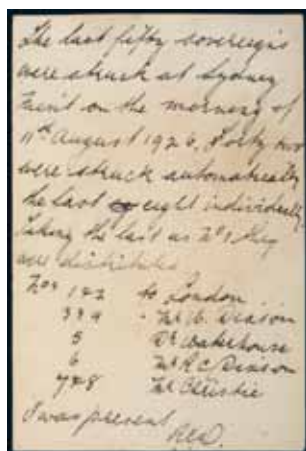 The last fifty sovereigns
were struck at Sydney
Mint on the morning of
11th August 1926. Forty two
were struck automatically
the last eight individually.
Taking the last as No 1 they
are distributed
Nos 1 & 2 to London
3 & 4 " Mr
5 Dr Wakehouse
6 Mr R C Deason
7 & 8 Mr Christie
I was present